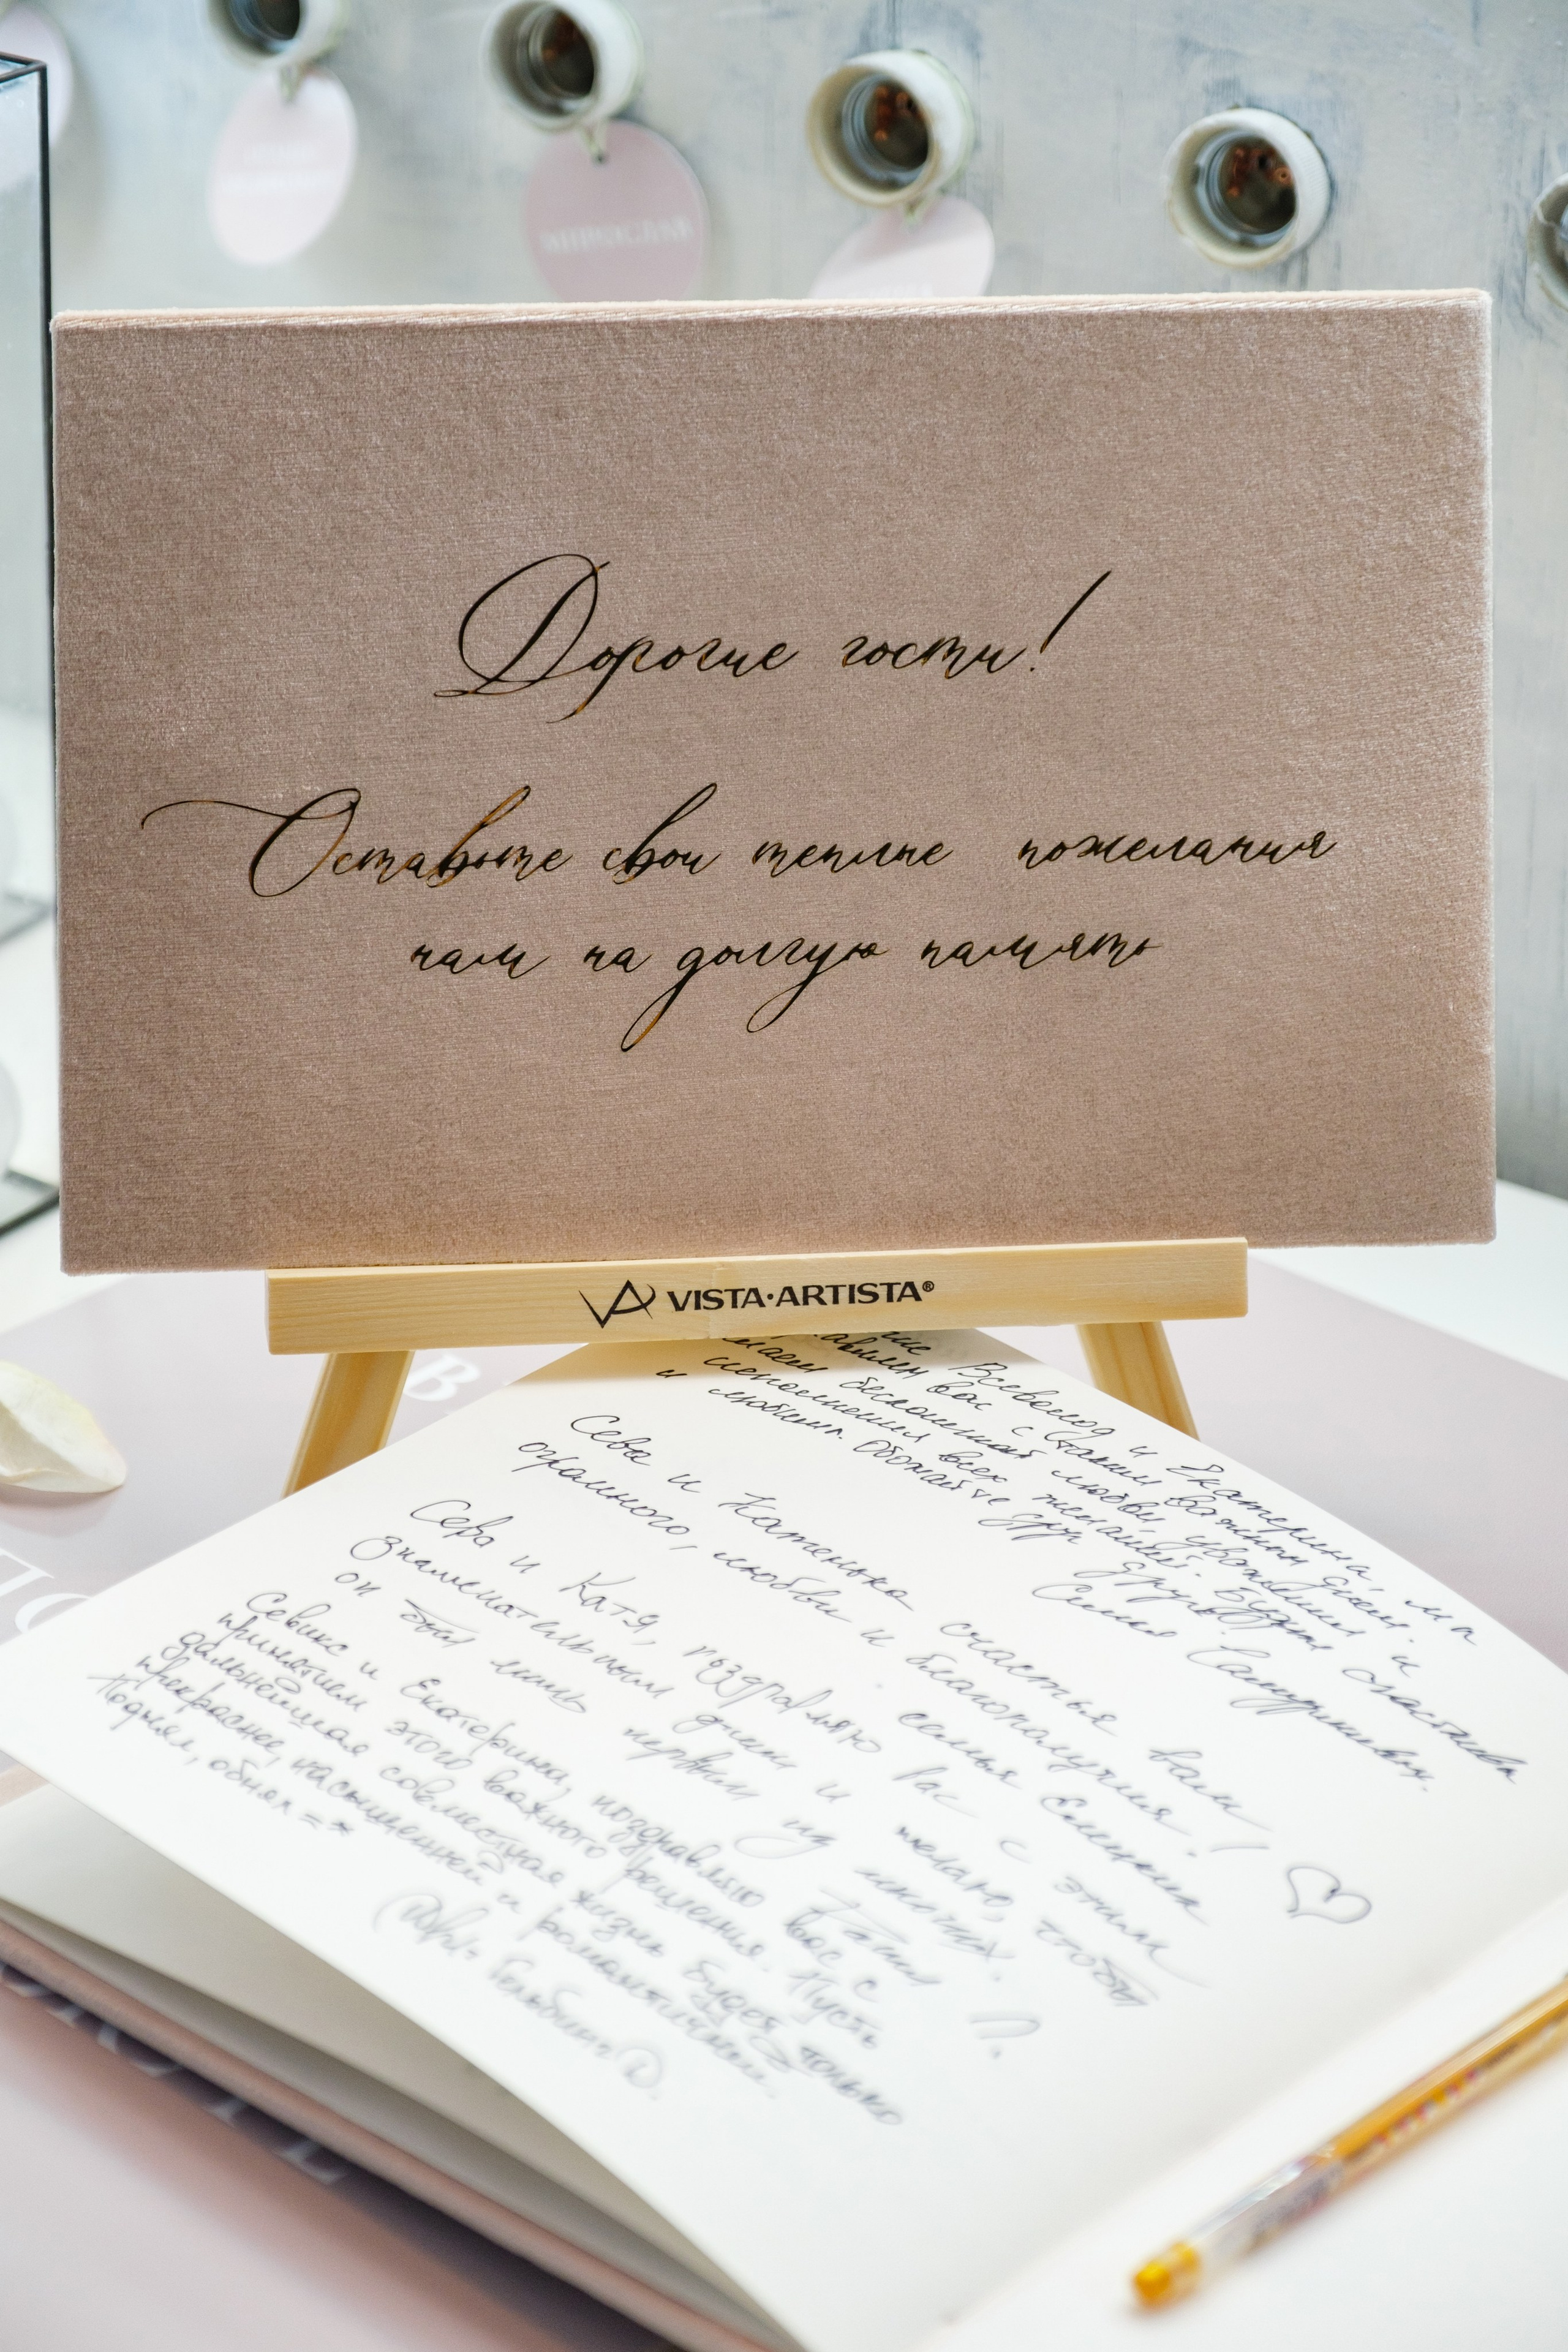 Дорогие гости!
Оставьте свои теплые пожелания
нам на долгую память
VISTA·ARTISTA®
Всеволод и Екатерина, мы
вас с Вашим важным днем. и
бесконечной любви, уважения и
исполнения всех желаний. Будьте счастливы
и любимы. Обожайте друг друга!
Семья
Сева и Катенька счастья вам!
огромного, любви и благополучия!
семья
Сева и Катя, поздравляю Вас с этим
знаменательным днем и желаю, чтобы
он был лишь первым из многих.
Севикс и Екатерина, поздравляю вас с
принятием этого важного решения. Пусть
дальнейшая совместная жизнь будет только
прекраснее, насыщенней и романтичней.
Поднял, обнял =*
В